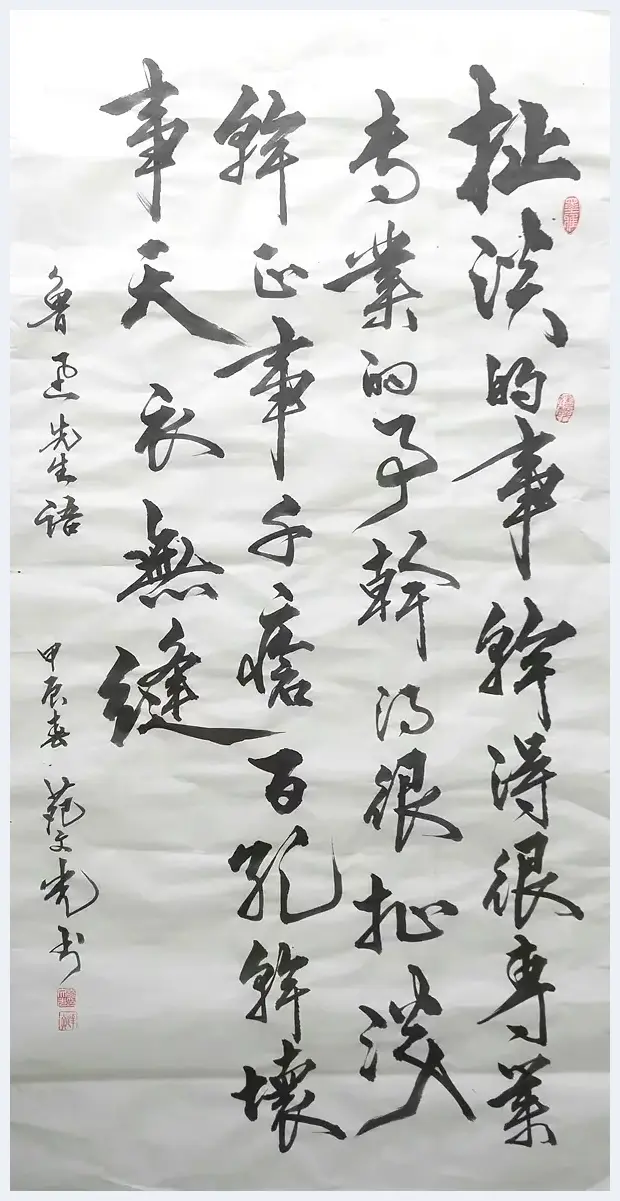 扯淡的事幹得很專業
专業的事幹得很扯淡
幹正事千瘡百孔幹壞
事天衣無縫
魯迅先生语
甲辰春 苑文光书